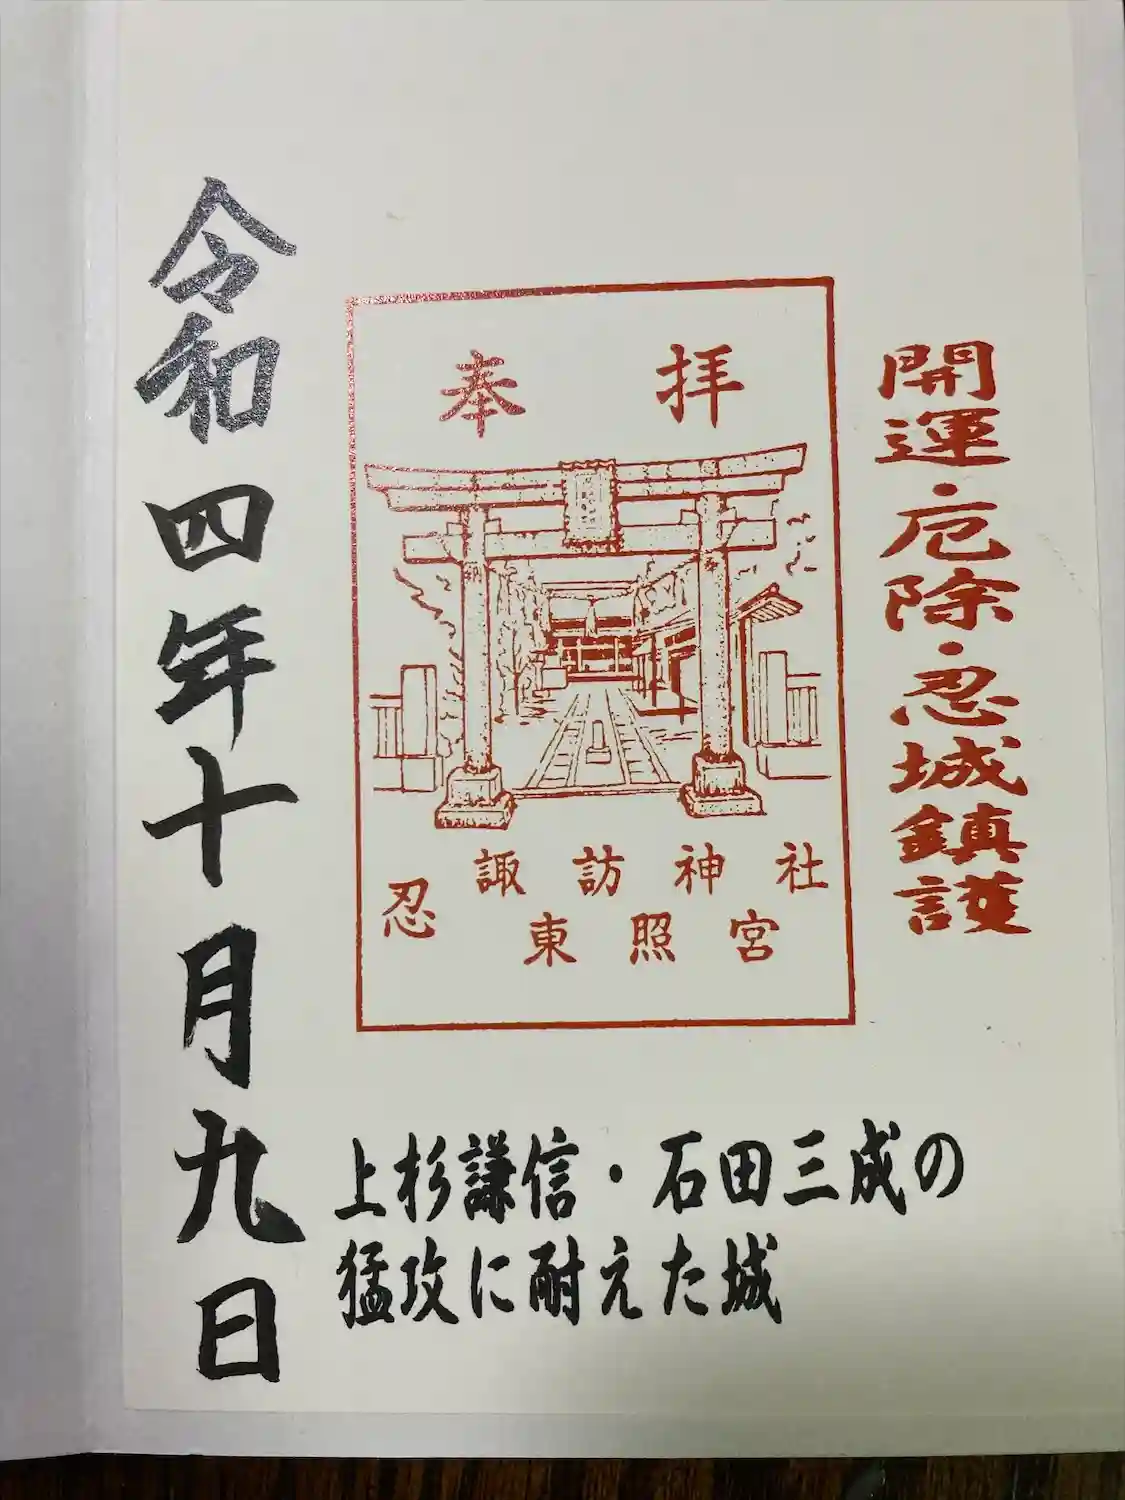 開運・厄除・忍城鎮護
奉拝
忍
諏訪神社
東照宮
上杉謙信・石田三成の
猛攻に耐えた城
令和四年十月九日